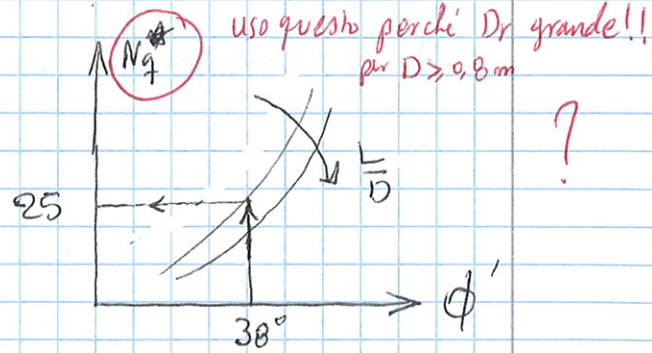 Nq* uso questo perché Dr grande!!
per D ≥ 0,8 m
?
L/D
25
38°
ϕ'